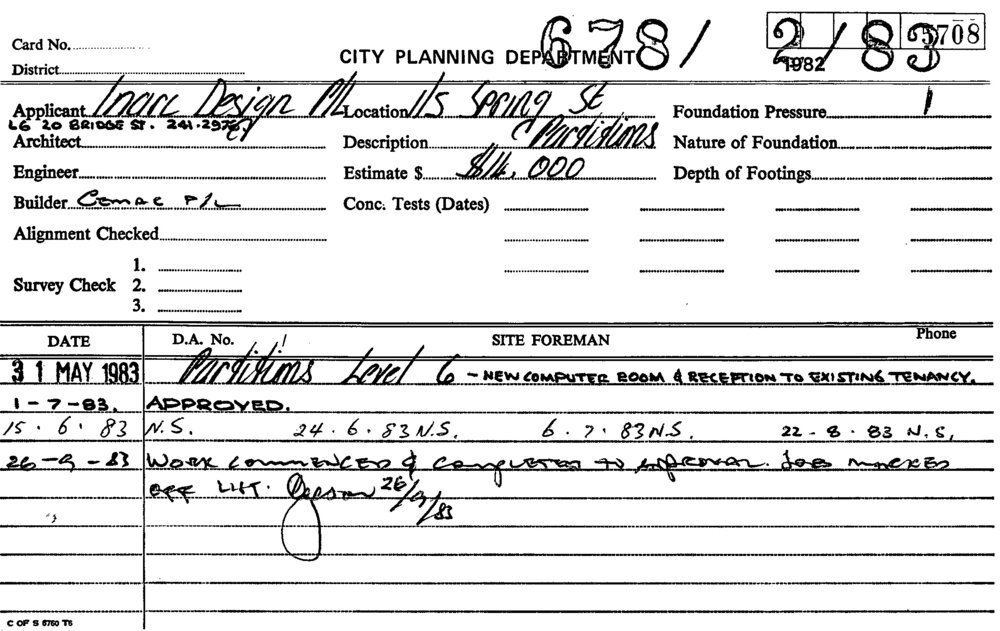 Card No.
District
CITY PLANNING DEPARTMENT
678/2/83
5708
1982
Applicant Inarc Design P/L
L6 20 BRIDGE ST. 241.2976
Location 1/5 Spring St
Foundation Pressure
Architect
Description Partitions
Nature of Foundation
Engineer
Estimate $ $14,000
Depth of Footings
Builder Comac P/L
Conc. Tests (Dates)
Alignment Checked
Survey Check
1.
2.
3.
DATE D.A. No. SITE FOREMAN Phone
31 MAY 1983 Partitions Level 6 - NEW COMPUTER ROOM & RECEPTION TO EXISTING TENANCY.
1-7-83. APPROVED.
15.6.83 N.S. 24.6.83 N.S. 6.7.83 N.S. 22-8-83 N.S.
26-9-83 WORK COMMENCED & COMPLETED TO APPROVAL. JOB MARKED
OFF LIST. 26/9/83
C OF S 6760 T6